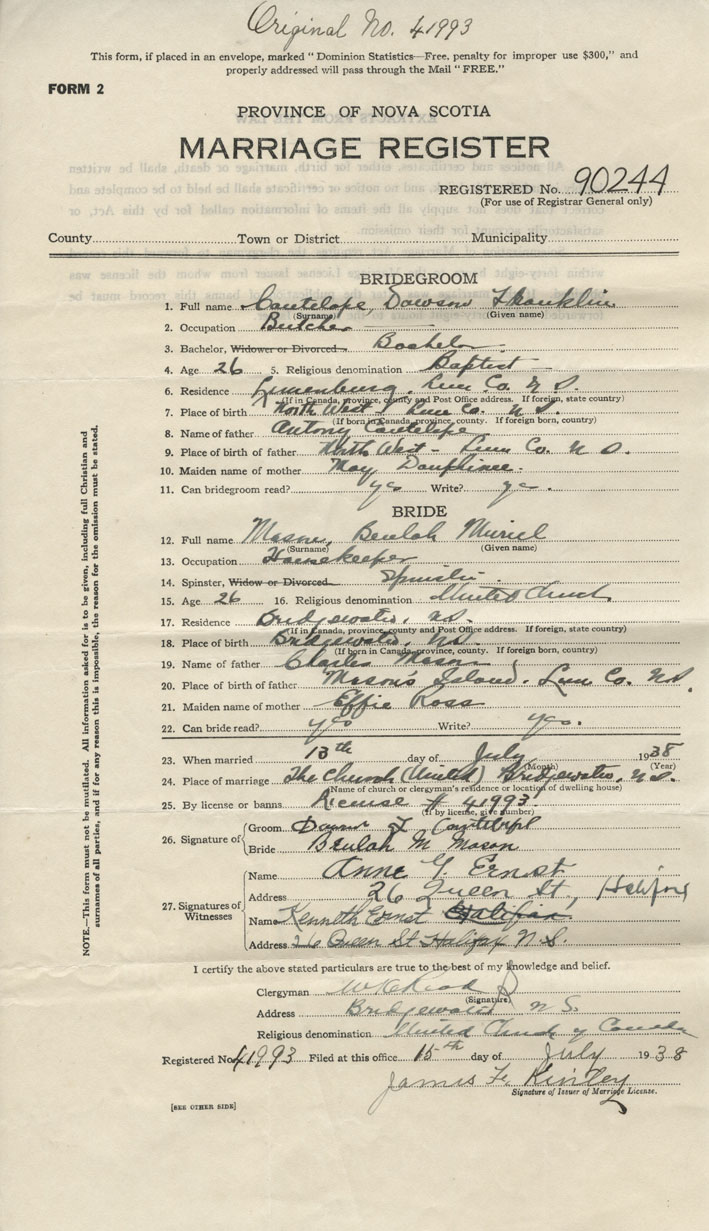 Original No. 41993
This form, if placed in an envelope, marked "Dominion Statistics—Free, penalty for improper use $300," and
properly addressed will pass through the Mail "FREE."
FORM 2
PROVINCE OF NOVA SCOTIA
MARRIAGE REGISTER
REGISTERED No. 90244
(For use of Registrar General only)
County Town or District Municipality
BRIDEGROOM
1. Full name Cantelope, Dawson Franklin
(Surname) (Given name)
2. Occupation Butcher
3. Bachelor, Widower or Divorced Bachelor
4. Age 26 5. Religious denomination Baptist
6. Residence Lunenburg, Lun Co. N S.
(If in Canada, province, county and Post Office address. If foreign, state country)
7. Place of birth North West Lun Co. N S.
(If born in Canada, province, county. If foreign born, country)
8. Name of father Antony Cantelope
9. Place of birth of father North West - Lun Co. N S
10. Maiden name of mother May Dauphinee.
11. Can bridegroom read? yes Write? yes.
BRIDE
12. Full name Mason, Beulah Muriel
(Surname) (Given name)
13. Occupation Housekeeper
14. Spinster, Widow or Divorced Spinster
15. Age 26 16. Religious denomination United Church
17. Residence Bridgewater, N.S.
(If in Canada, province, county and Post Office address. If foreign, state country)
18. Place of birth Bridgewater, N.S.
(If born in Canada, province, county. If foreign born, country)
19. Name of father Charles Mason
20. Place of birth of father Mason's Island. Lun Co. N.S.
21. Maiden name of mother Effie Ross
22. Can bride read? yes Write? yes.
23. When married 13th day of July 1938
(Month) (Year)
24. Place of marriage The Church (United) Bridgewater, N.S.
(Name of church or clergyman's residence or location of dwelling house)
25. By license or banns License # 41993
(If by license, give number)
26. Signature of Groom F.
Bride Beulah M Mason
27. Signatures of Witnesses Name Anne G. Ernst
Address 26 Queen St., Halifax
Name Kenneth Ernst Halifax
Address 26 Queen St Halifax N.S.
NOTE.—This form must not be mutilated. All information asked for is to be given, including full Christian and
surnames of all parties, and if for any reason this is impossible, the reason for the omission must be stated.
I certify the above stated particulars are true to the best of my knowledge and belief.
Clergyman
(Signature)
Address Bridgewater N S.
Religious denomination United Church of Canada
Registered No. 41993 Filed at this office 15th day of July 1938
James F. Kinley
Signature of Issuer of Marriage License.
[SEE OTHER SIDE]